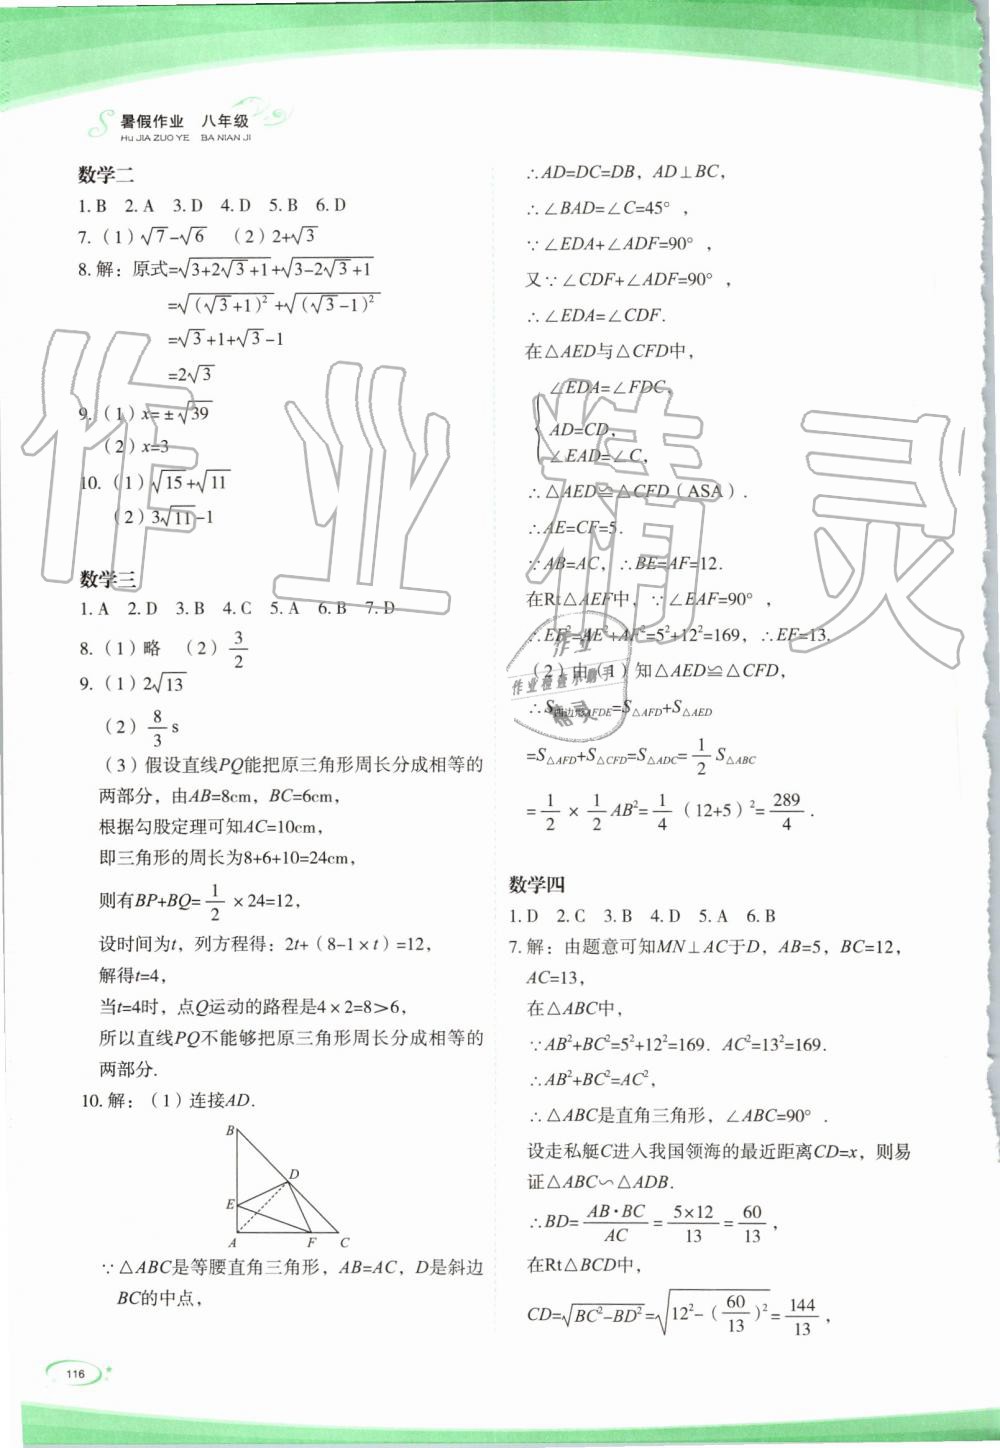 暑假作业 八年级
Hu JIA ZUO YE BA NIAN JI
数学二
1. B 2. A 3. D 4. D 5. B 6. D
7.（1）√7-√6 （2）2+√3
8. 解：原式=√(3+2√3+1)+√(3-2√3+1)
=√((√3+1)²)+√((√3-1)²)
=√3+1+√3-1
=2√3
9.（1）x=±√39
（2）x=3
10.（1）√15+√11
（2）3√11-1
数学三
1. A 2. D 3. B 4. C 5. A 6. B 7. D
8.（1）略 （2）3/2
9.（1）2√13
（2）8/3 s
（3）假设直线PQ能把原三角形周长分成相等的
两部分，由AB=8cm，BC=6cm，
根据勾股定理可知AC=10cm，
即三角形的周长为8+6+10=24cm，
则有BP+BQ=1/2×24=12，
设时间为t，列方程得：2t+（8-1×t）=12，
解得t=4，
当t=4时，点Q运动的路程是4×2=8＞6，
所以直线PQ不能够把原三角形周长分成相等的
两部分.
10. 解：（1）连接AD.
B
D
E
A F C
∵△ABC是等腰直角三角形，AB=AC，D是斜边
BC的中点，
∴AD=DC=DB，AD⊥BC，
∴∠BAD=∠C=45°，
∵∠EDA+∠ADF=90°，
又∵∠CDF+∠ADF=90°，
∴∠EDA=∠CDF.
在△AED与△CFD中，
∠EDA=∠FDC，
AD=CD，
∠EAD=∠C，
∴△AED≌△CFD（ASA）.
∴AE=CF=5.
∵AB=AC，∴BE=AF=12.
在Rt△AEF中，∵∠EAF=90°，
∴EF²=AE²+AF²=5²+12²=169，∴EF=13.
（2）由（1）知△AED≌△CFD，
∴S四边形AFDE=S△AFD+S△AED
=S△AFD+S△CFD=S△ADC=1/2 S△ABC
=1/2×1/2 AB²=1/4（12+5）²=289/4.
数学四
1. D 2. C 3. B 4. D 5. A 6. B
7. 解：由题意可知MN⊥AC于D，AB=5，BC=12，
AC=13，
在△ABC中，
∵AB²+BC²=5²+12²=169. AC²=13²=169.
∴AB²+BC²=AC²，
∴△ABC是直角三角形，∠ABC=90°.
设走私艇C进入我国领海的最近距离CD=x，则易
证△ABC∽△ADB.
∴BD=AB·BC/AC=5×12/13=60/13，
在Rt△BCD中，
CD=√(BC²-BD²)=√(12²-（60/13）²)=144/13，
116
作业精灵
作业
作业检查小助手
精灵